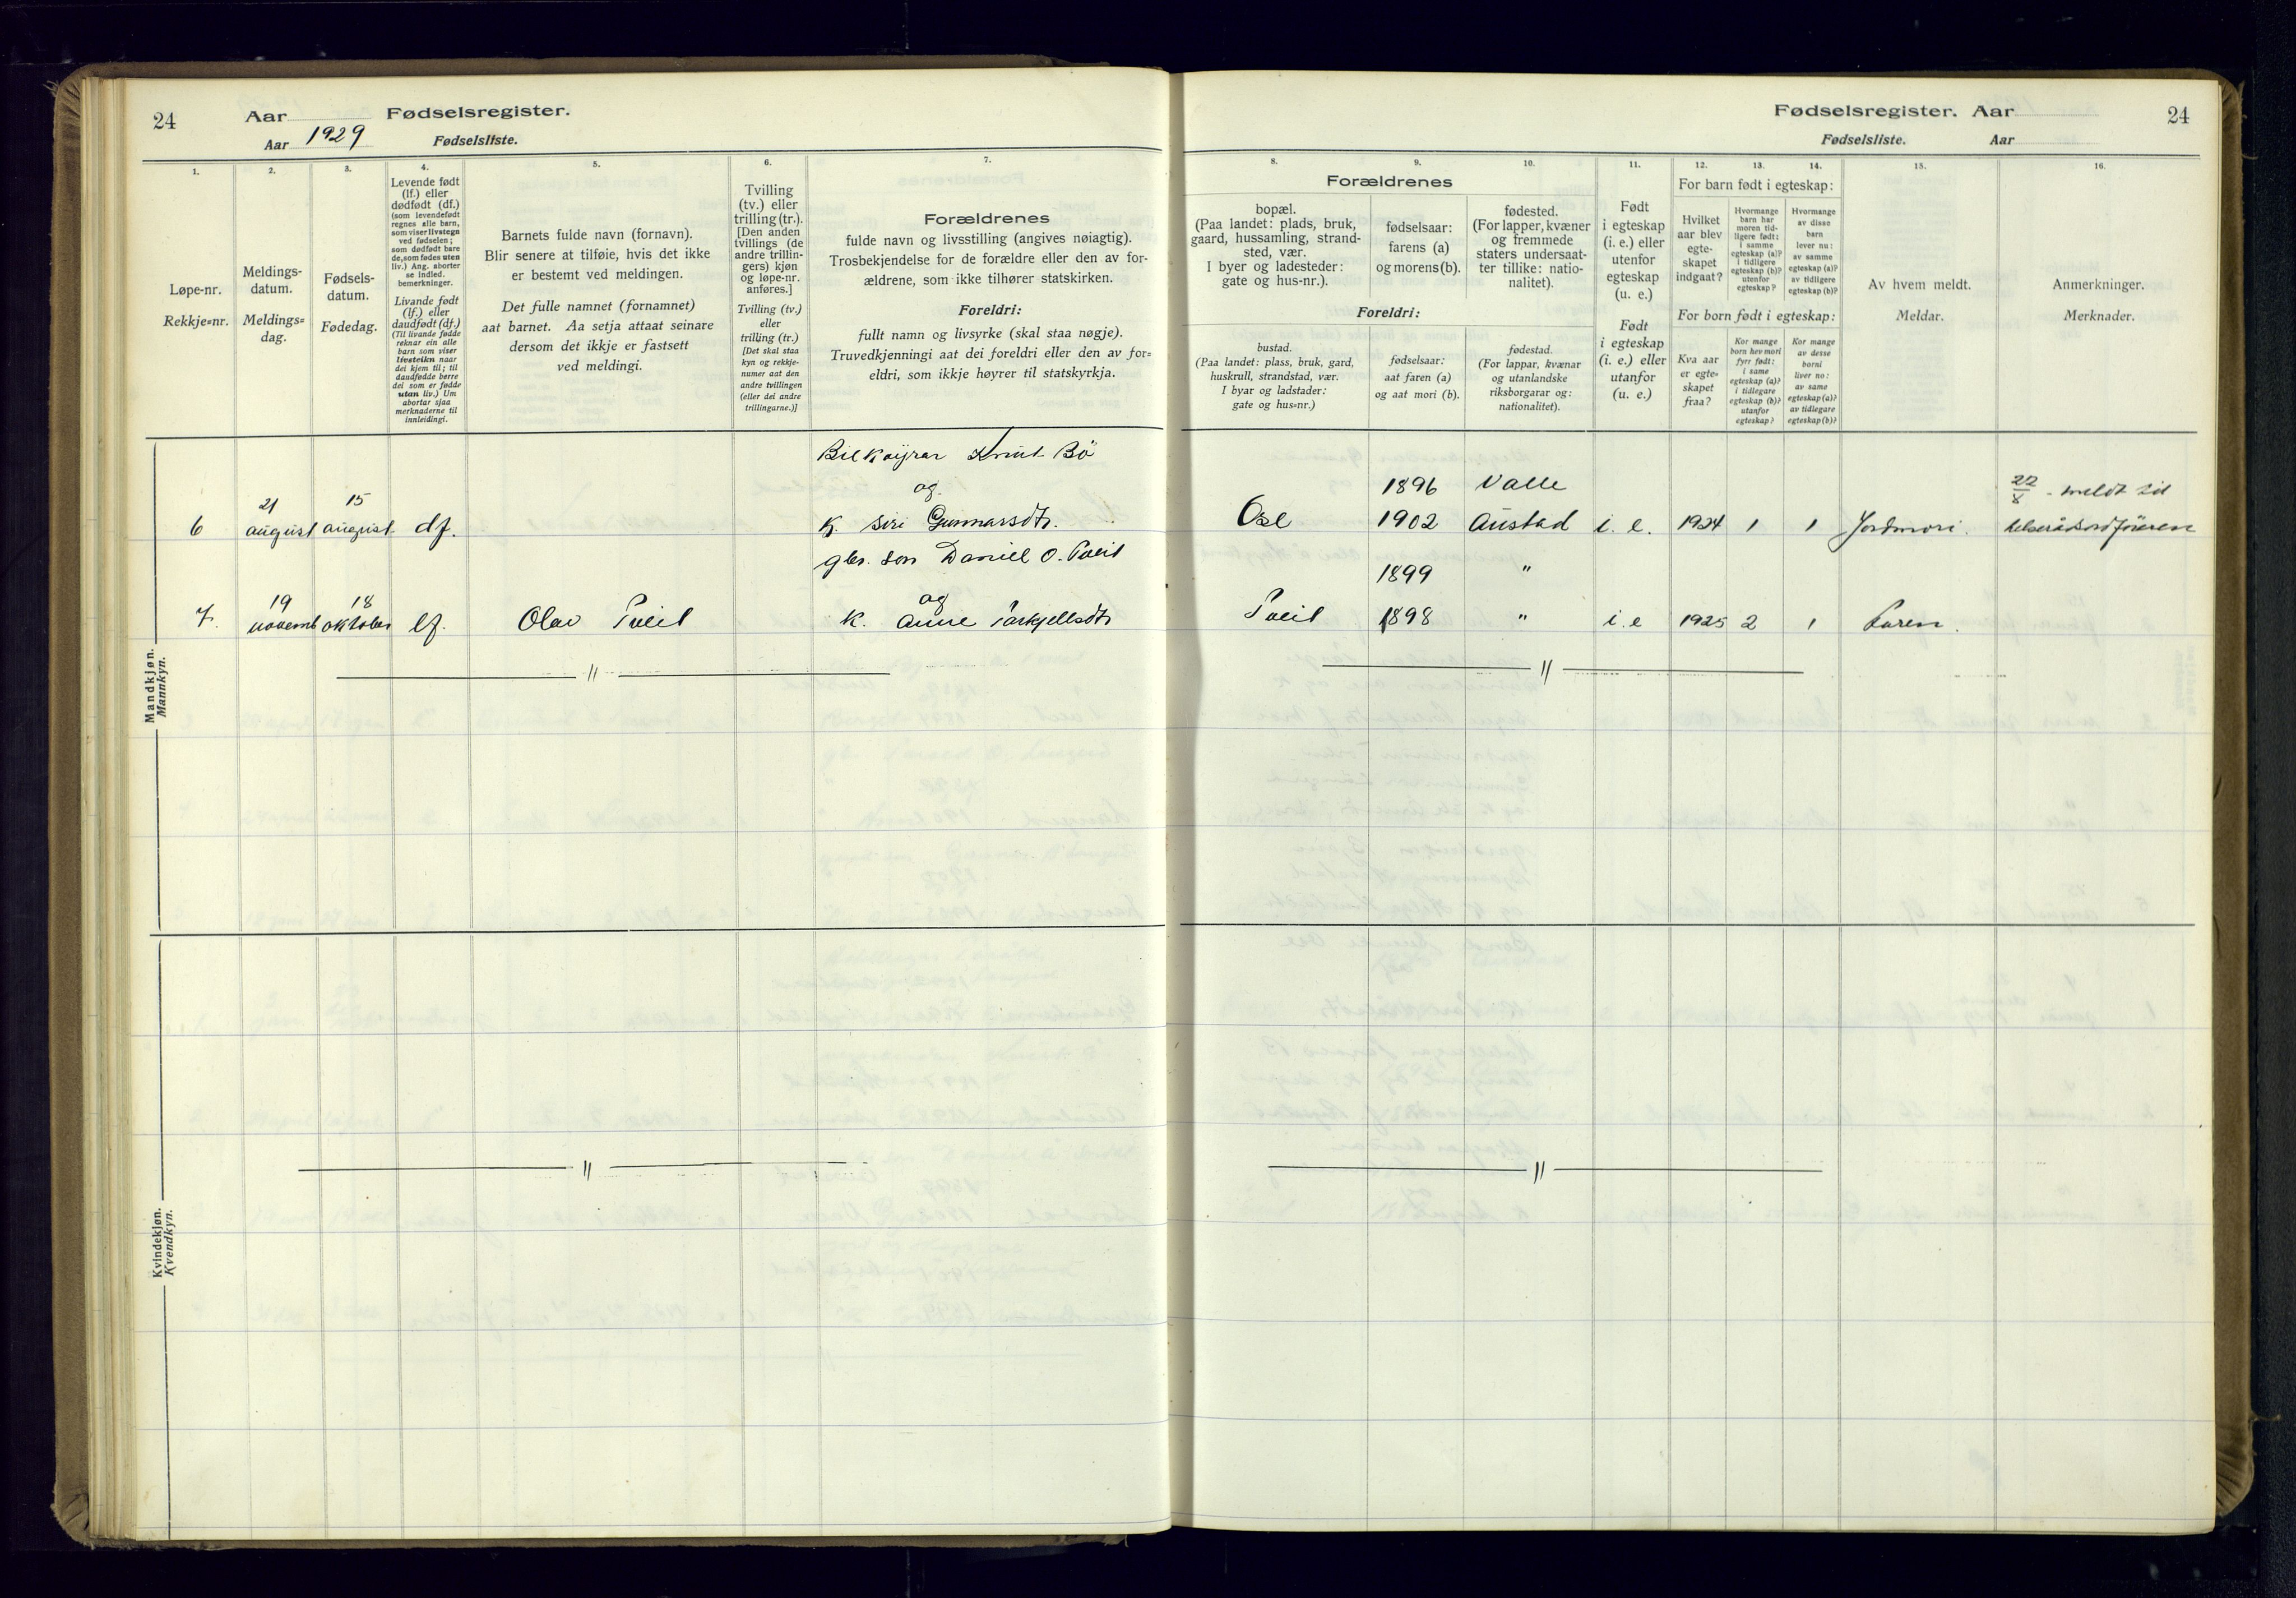 24
Aar Fødselsregister.
Aar 1929 Fødselsliste.
1.
Løpe-nr.
Rekkje-nr.
2.
Meldings-
datum.
Meldings-
dag.
3.
Fødsels-
datum.
Fødedag.
4.
Levende født
(lf.) eller
dødfødt (df.)
(som levendefødt
regnes alle barn,
som viser livstegn
ved fødselen;
som dødfødt bare
de, som fødes uten
liv.) Ang. aborter
se indled.
bemerkninger.
Livande født
(lf.) eller
daudfødt (df.)
(Til livande fødde
reknar ein alle
barn som viser
livsteikn naar
dei kjem til; til
daudfødde berre
dei som er fødde
utan liv.) Um
abortar sjaa
merknaderne til
innleidingi.
5.
Barnets fulde navn (fornavn).
Blir senere at tilføie, hvis det ikke
er bestemt ved meldingen.
Det fulle namnet (fornamnet)
aat barnet. Aa setja attaat seinare
dersom det ikkje er fastsett
ved meldingi.
6.
Tvilling
(tv.) eller
trilling (tr.).
[Den anden
tvillings (de
andre trillin-
gers) kjøn
og løpe-nr.
anføres.]
Tvilling (tv.)
eller
trilling (tr.)
[Det skal staa
kyn og rekkje-
numer aat den
andre tvillingen
(eller dei andre
trillingarne.)]
7.
Forældrenes
fulde navn og livsstilling (angives nøiagtig).
Trosbekjendelse for de forældre eller den av for-
ældrene, som ikke tilhører statskirken.
Foreldri:
fullt namn og livsyrke (skal staa nøgje).
Truvedkjenningi aat dei foreldri eller den av for-
eldri, som ikkje høyrer til statskyrkja.
Mandkjøn.
Mannkyn.
Bilkøyrar Knut Bö
og
6 21 august 15 august df. k. Siri Gunnarsdtr.
gbr. son Daniel O. Tveit
og
7. 19 novemb 18 oktober lf. Olav Tveit k. Anne Tarkjellsdtr
"
Kvindekjøn.
Kvendkyn.
"
Fødselsregister. Aar
24
Fødselsliste. Aar
8.
Forældrenes
bopæl.
(Paa landet: plads, bruk,
gaard, hussamling, strand-
sted, vær.
I byer og ladesteder:
gate og hus-nr.).
Foreldri:
bustad.
(Paa landet: plass, bruk, gard,
huskrull, strandstad, vær.
I byar og ladstader:
gate og hus-nr.)
9.
fødselsaar:
farens (a)
og morens (b).
fødselsaar:
aat faren (a)
og aat mori (b).
10.
fødested.
(For lapper, kvæner
og fremmede
staters undersaat-
ter tillike: natio-
nalitet).
fødestad.
(For lappar, kvænar
og utanlandske
riksborgarar og:
nationalitet).
11.
Født
i egteskap
(i. e.) eller
utenfor
egteskap
(u. e.)
Født
i egteskap
(i. e.) eller
utanfor
(u. e.)
For barn født i egteskap:
12.
Hvilket
aar blev
egte-
skapet
indgaat?
13.
Hvormange
barn har
moren tid-
ligere født:
i samme
egteskap (a)?
i tidligere
egteskap (b)?
utenfor
egteskap?
14.
Hvormange
av disse
barn
lever nu:
av samme
egteskap (a)?
av tidligere
egteskap (b)?
For born født i egteskap:
Kva aar
er egte-
skapet
fraa?
Kor mange
born hev mori
fyrr født:
i same
egteskap (a)?
i tidlegare
egteskap (b)?
utanfor
egteskap?
Kor mange
av desse
borni
liver no:
av same
egteskap (a)?
av tidlegare
egteskap (b)?
15.
Av hvem meldt.
Meldar.
16.
Anmerkninger.
Merknader.
1896 Valle 22/8 . meldt til
Ose 1902 Austad i. e. 1924 1 1 Jordmori. helserådsordføraren
1899 "
Tveit 1898 " i. e 1925 2 1 Faren.
"
"